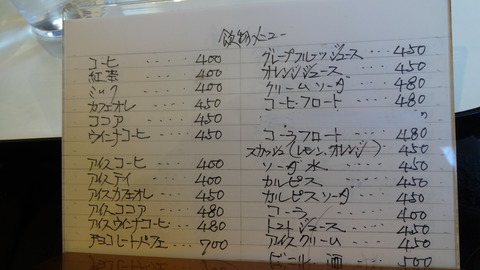 飲物メニュー
コーヒ ・・・・ 400
紅茶 ・・・・ 400
ミルク ・・・・ 400
カフェオレ ・・・・ 450
ココア ・・・・ 450
ウインナコーヒ ・・・ 450
アイスコーヒ ・・・・ 400
アイステイ ・・・・ 400
アイスカフェオレ ・・・ 450
アイスココア ・・・・ 480
アイスウインナコーヒ ・・・ 480
チョコレートパフェ ・・・ 700
グレープフルーツジュース ・・・ 450
オレンジジュース ・・・・ 450
クリームソーダ ・・・・ 480
コーヒ・フロート ・・・・ 480
〃
コーラフロート ・・・・ 480
スカッシュ(レモン・オレンジ) 450
ソーダ水 ・・・・ 450
カルピス ・・・・ 450
カルピスソーダ ・・・ 450
コーラ ・・・・ 400
トマトジュース ・・・・ 450
アイスクリーム ・・・・ 450
ビール 酒 ・・・・ 500